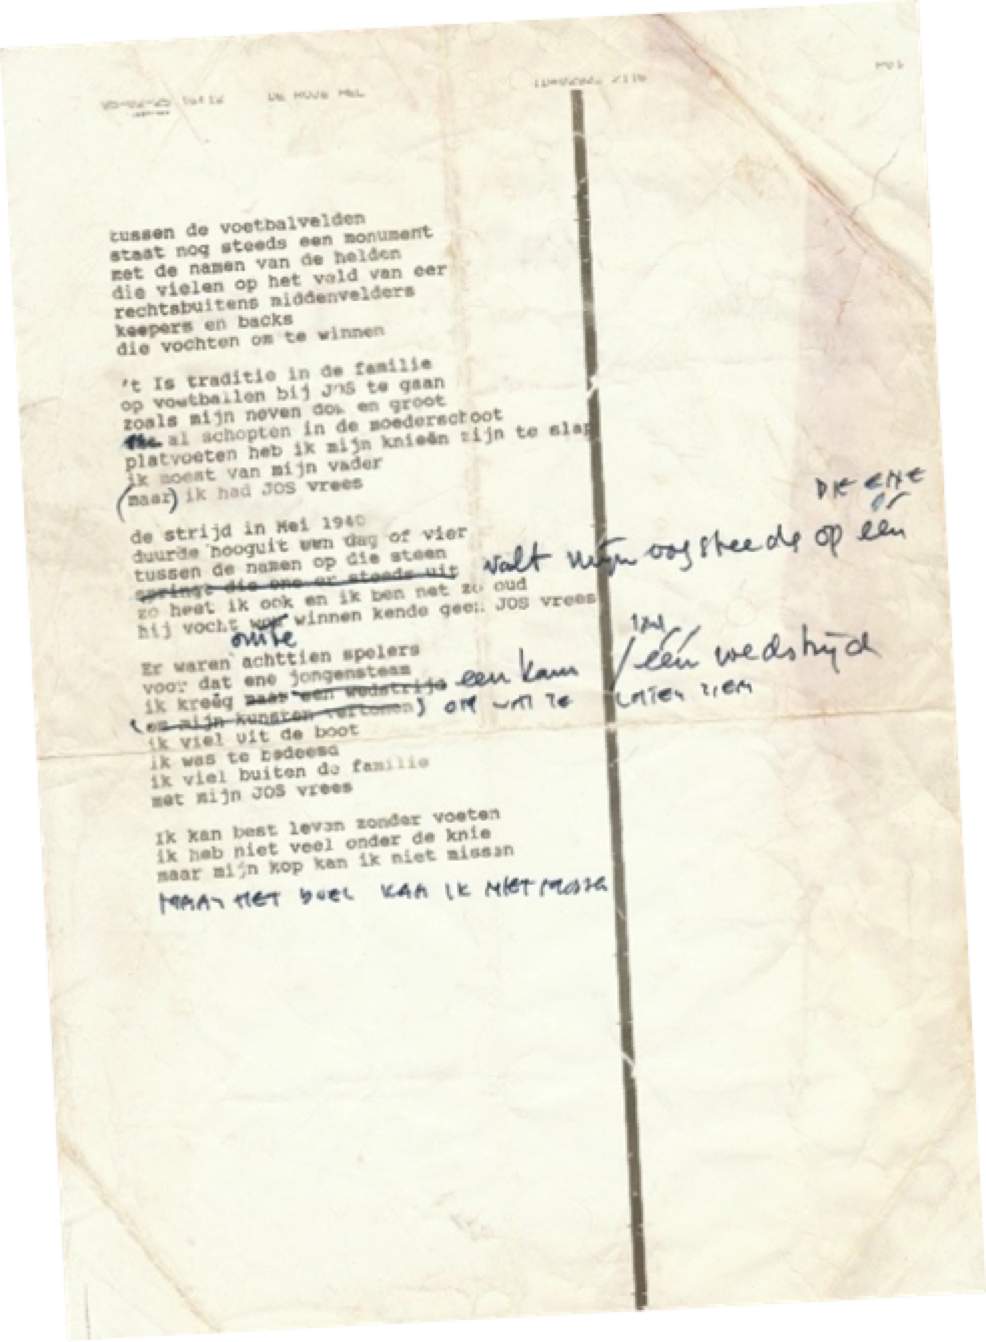 DE ROOS
tussen de voetbalvelden
staat nog steeds een monument
met de namen van de helden
die vielen op het veld van eer
rechtsbuitens middenvelders
keepers en backs
die vochten om te winnen
't Is traditie in de familie
op voetballen bij JOS te gaan
zoals mijn neven dok en groot
al schopten in de moederschoot
platvoeten heb ik mijn knieën zijn te slap
ik moest van mijn vader
(maar) ik had JOS vrees
DIE ENE
de strijd in Mei 1940
duurde hooguit een dag of vier
tussen de namen op die steen valt mijn oog steeds op één
springt die ene er steeds uit
zo heet ik ook en ik ben net zo oud
hij vocht winnen kende geen JOS vrees
Er waren achttien spelers
voor dat ene jongensteam
ik kreeg maar een wedstrijd een kans / één wedstrijd
(om mijn kunsten vertonen) OM WAT TE LATEN ZIEN
ik viel uit de boot
ik was te bedeesd
ik viel buiten de familie
met mijn JOS vrees
Ik kan best leven zonder voeten
ik heb niet veel onder de knie
maar mijn kop kan ik niet missen
MAAR HET DOEL KAN IK NIET MISSEN